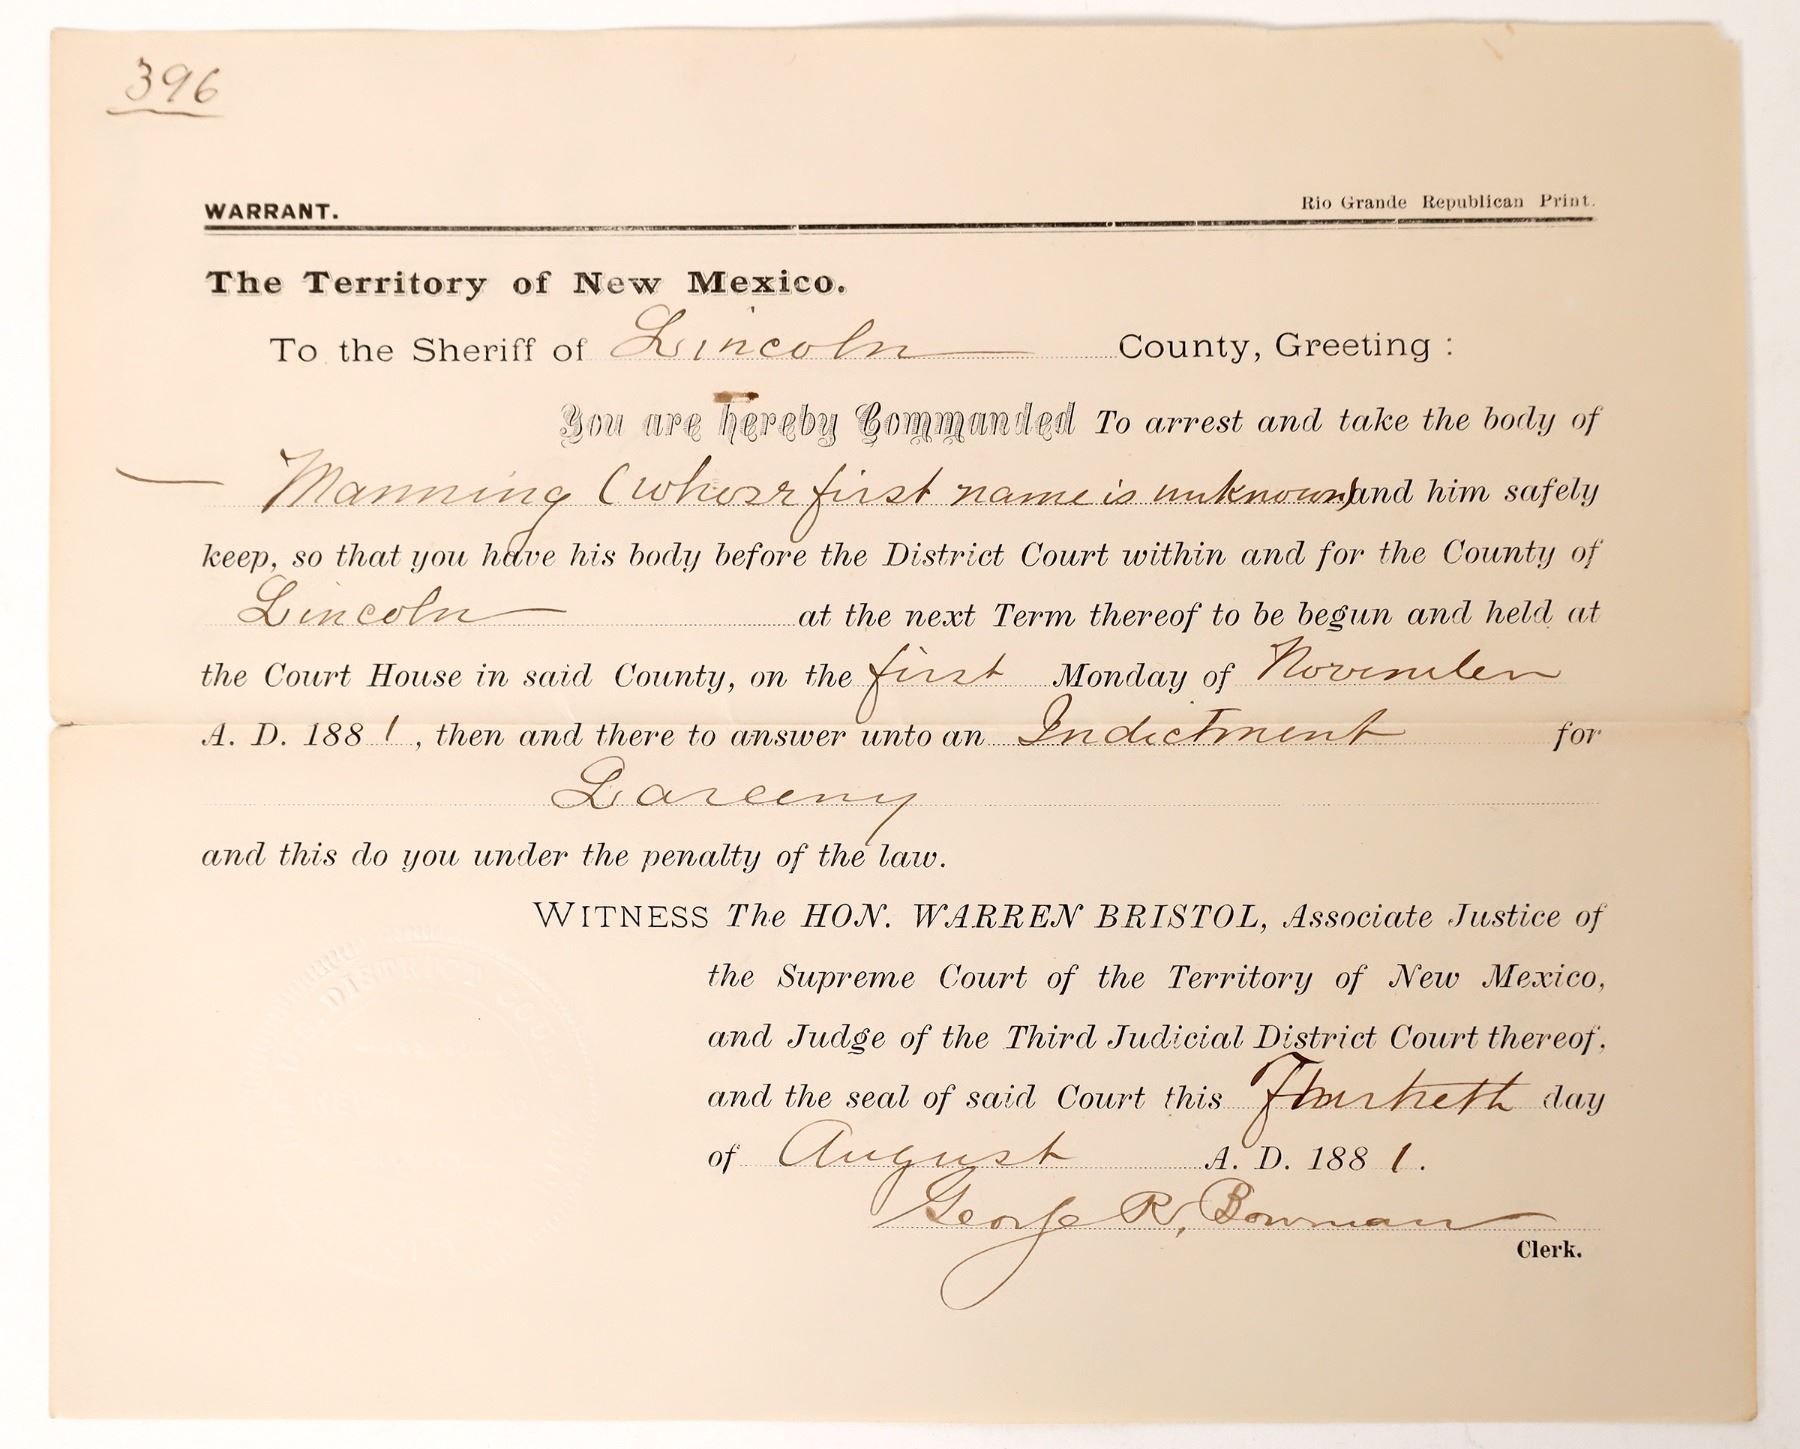 396
WARRANT. Rio Grande Republican Print.
The Territory of New Mexico.
To the Sheriff of Lincoln County, Greeting :
You are hereby Commanded To arrest and take the body of
— Manning (whose first name is unknown) and him safely
keep, so that you have his body before the District Court within and for the County of
Lincoln at the next Term thereof to be begun and held at
the Court House in said County, on the first Monday of November
A. D. 1881, then and there to answer unto an Indictment for
Larceny
and this do you under the penalty of the law.
WITNESS The HON. WARREN BRISTOL, Associate Justice of
the Supreme Court of the Territory of New Mexico,
and Judge of the Third Judicial District Court thereof,
and the seal of said Court this day
of August A. D. 1881.
George R. Bowman
Clerk.
DISTRICT